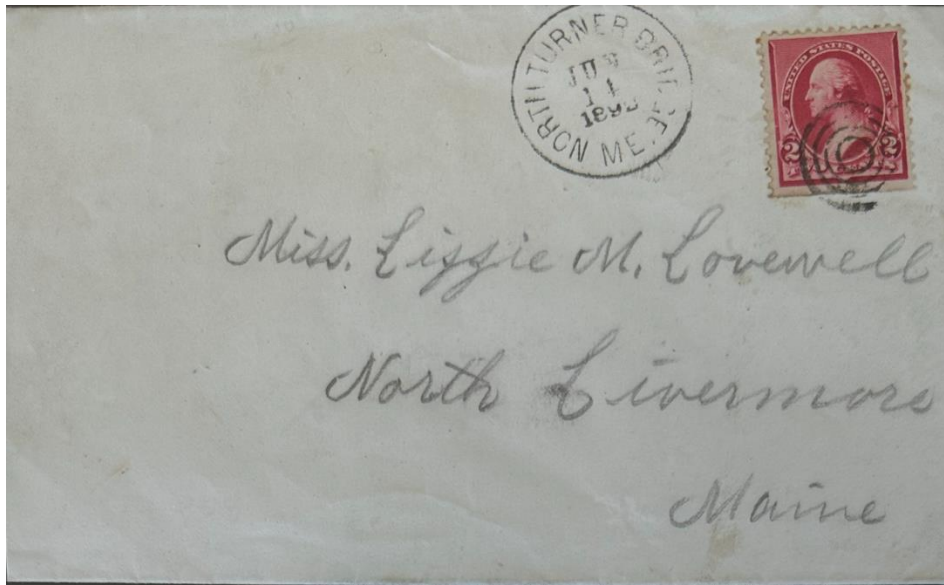 NORTH TURNER BRIDGE ME.
UNITED STATES POSTAGE
2 2
Miss. Lizzie M. Lovewell
North Livermore
Maine